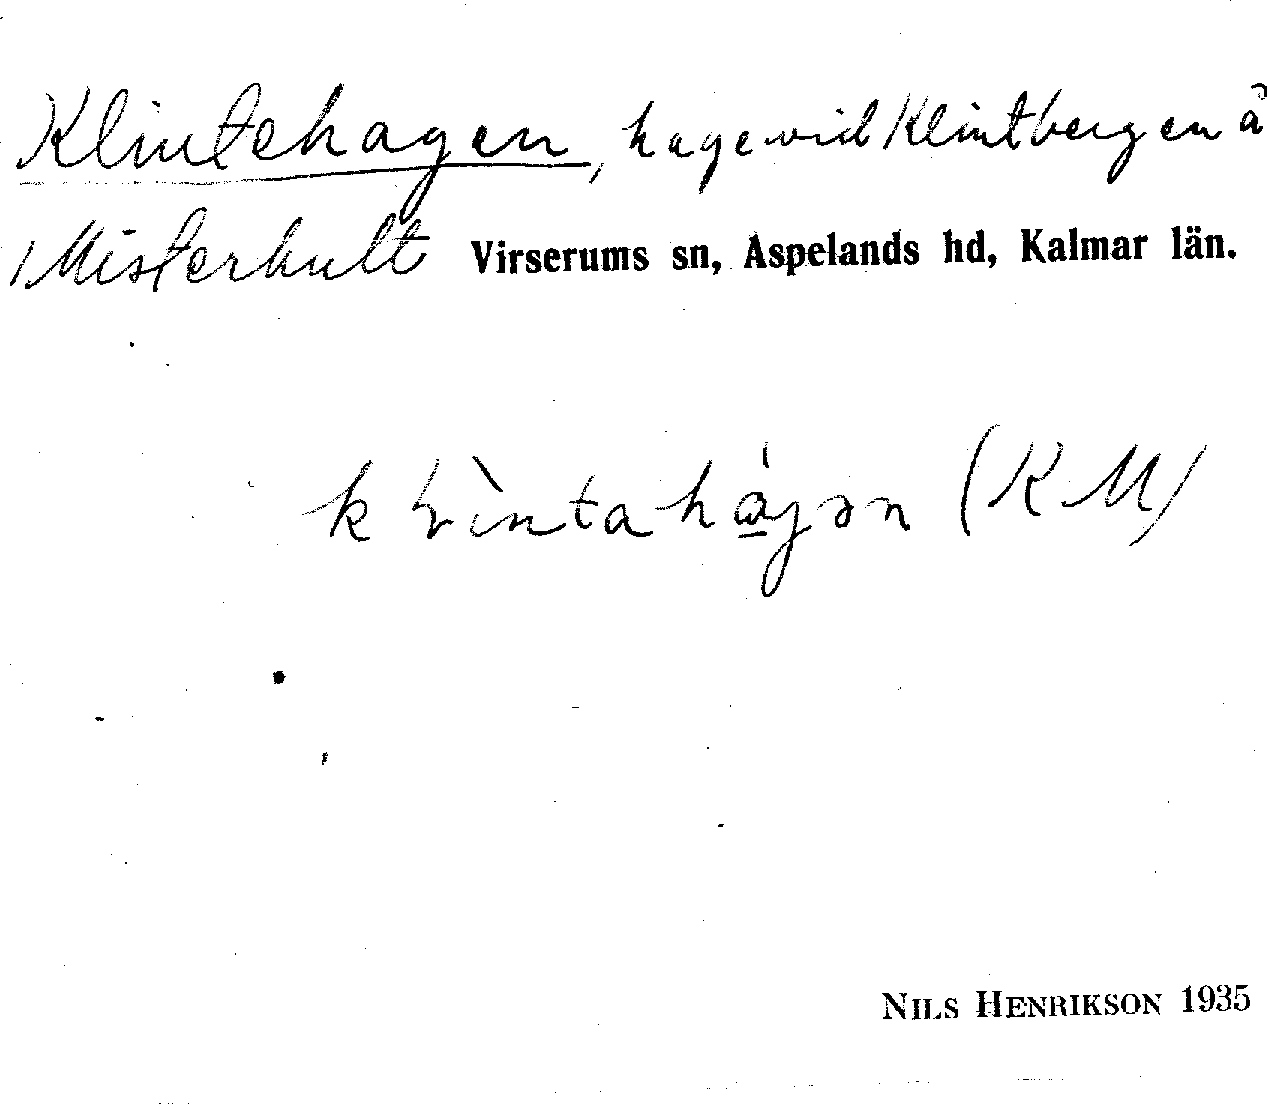 Klintehagen, hage vid Klintbergen å
Misterhult Virserums sn, Aspelands hd, Kalmar län.
(KM)
NILS HENRIKSON 1935